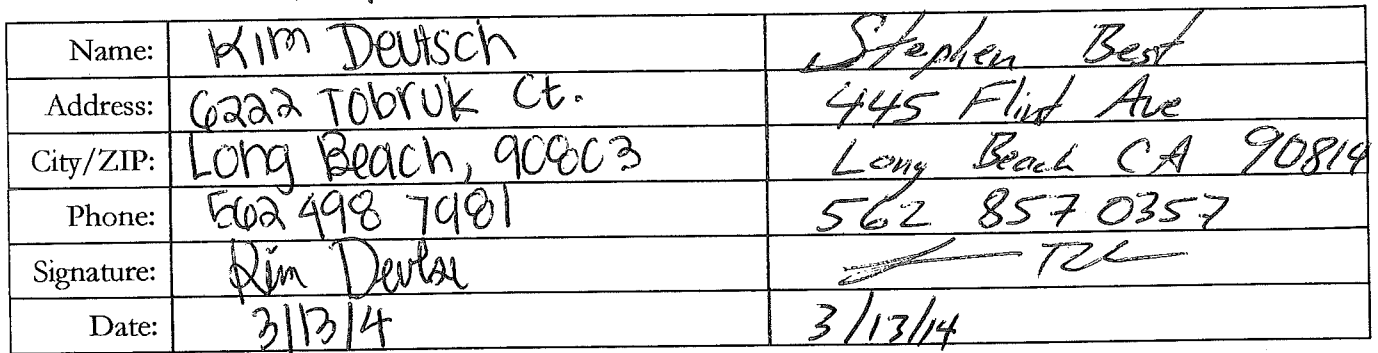 Name: Kim Deutsch Stephen Best
Address: 6222 Tobruk Ct. 445 Flint Ave
City/ZIP: Long Beach, 90803 Long Beach CA 90814
Phone: 562 498 7981 562 857 0357
Signature: Kim
Date: 3/13/4 3/13/14